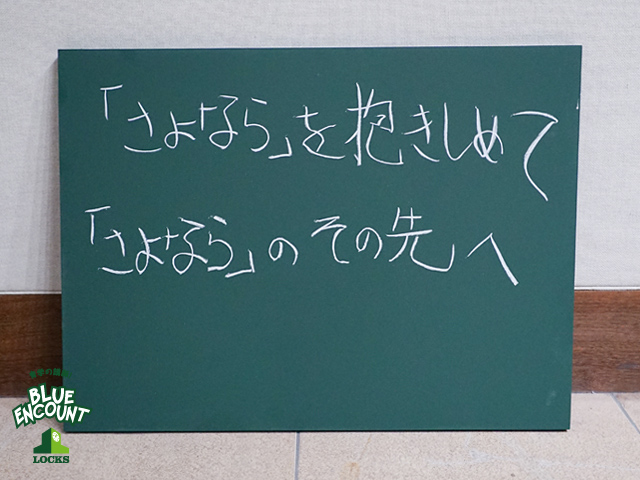 「さよなら」を抱きしめて
「さよなら」のその先へ
BLUE
ENCOUNT
LOCKS